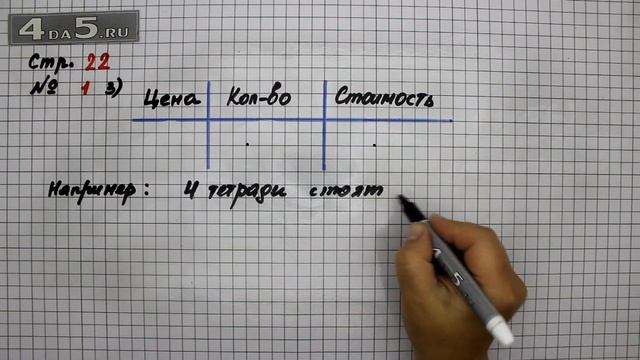 4DA5.RU
Стр. 22
№ 1 3)
Цена Кол-во Стоимость
Например: 4 тетради стоят
4 5